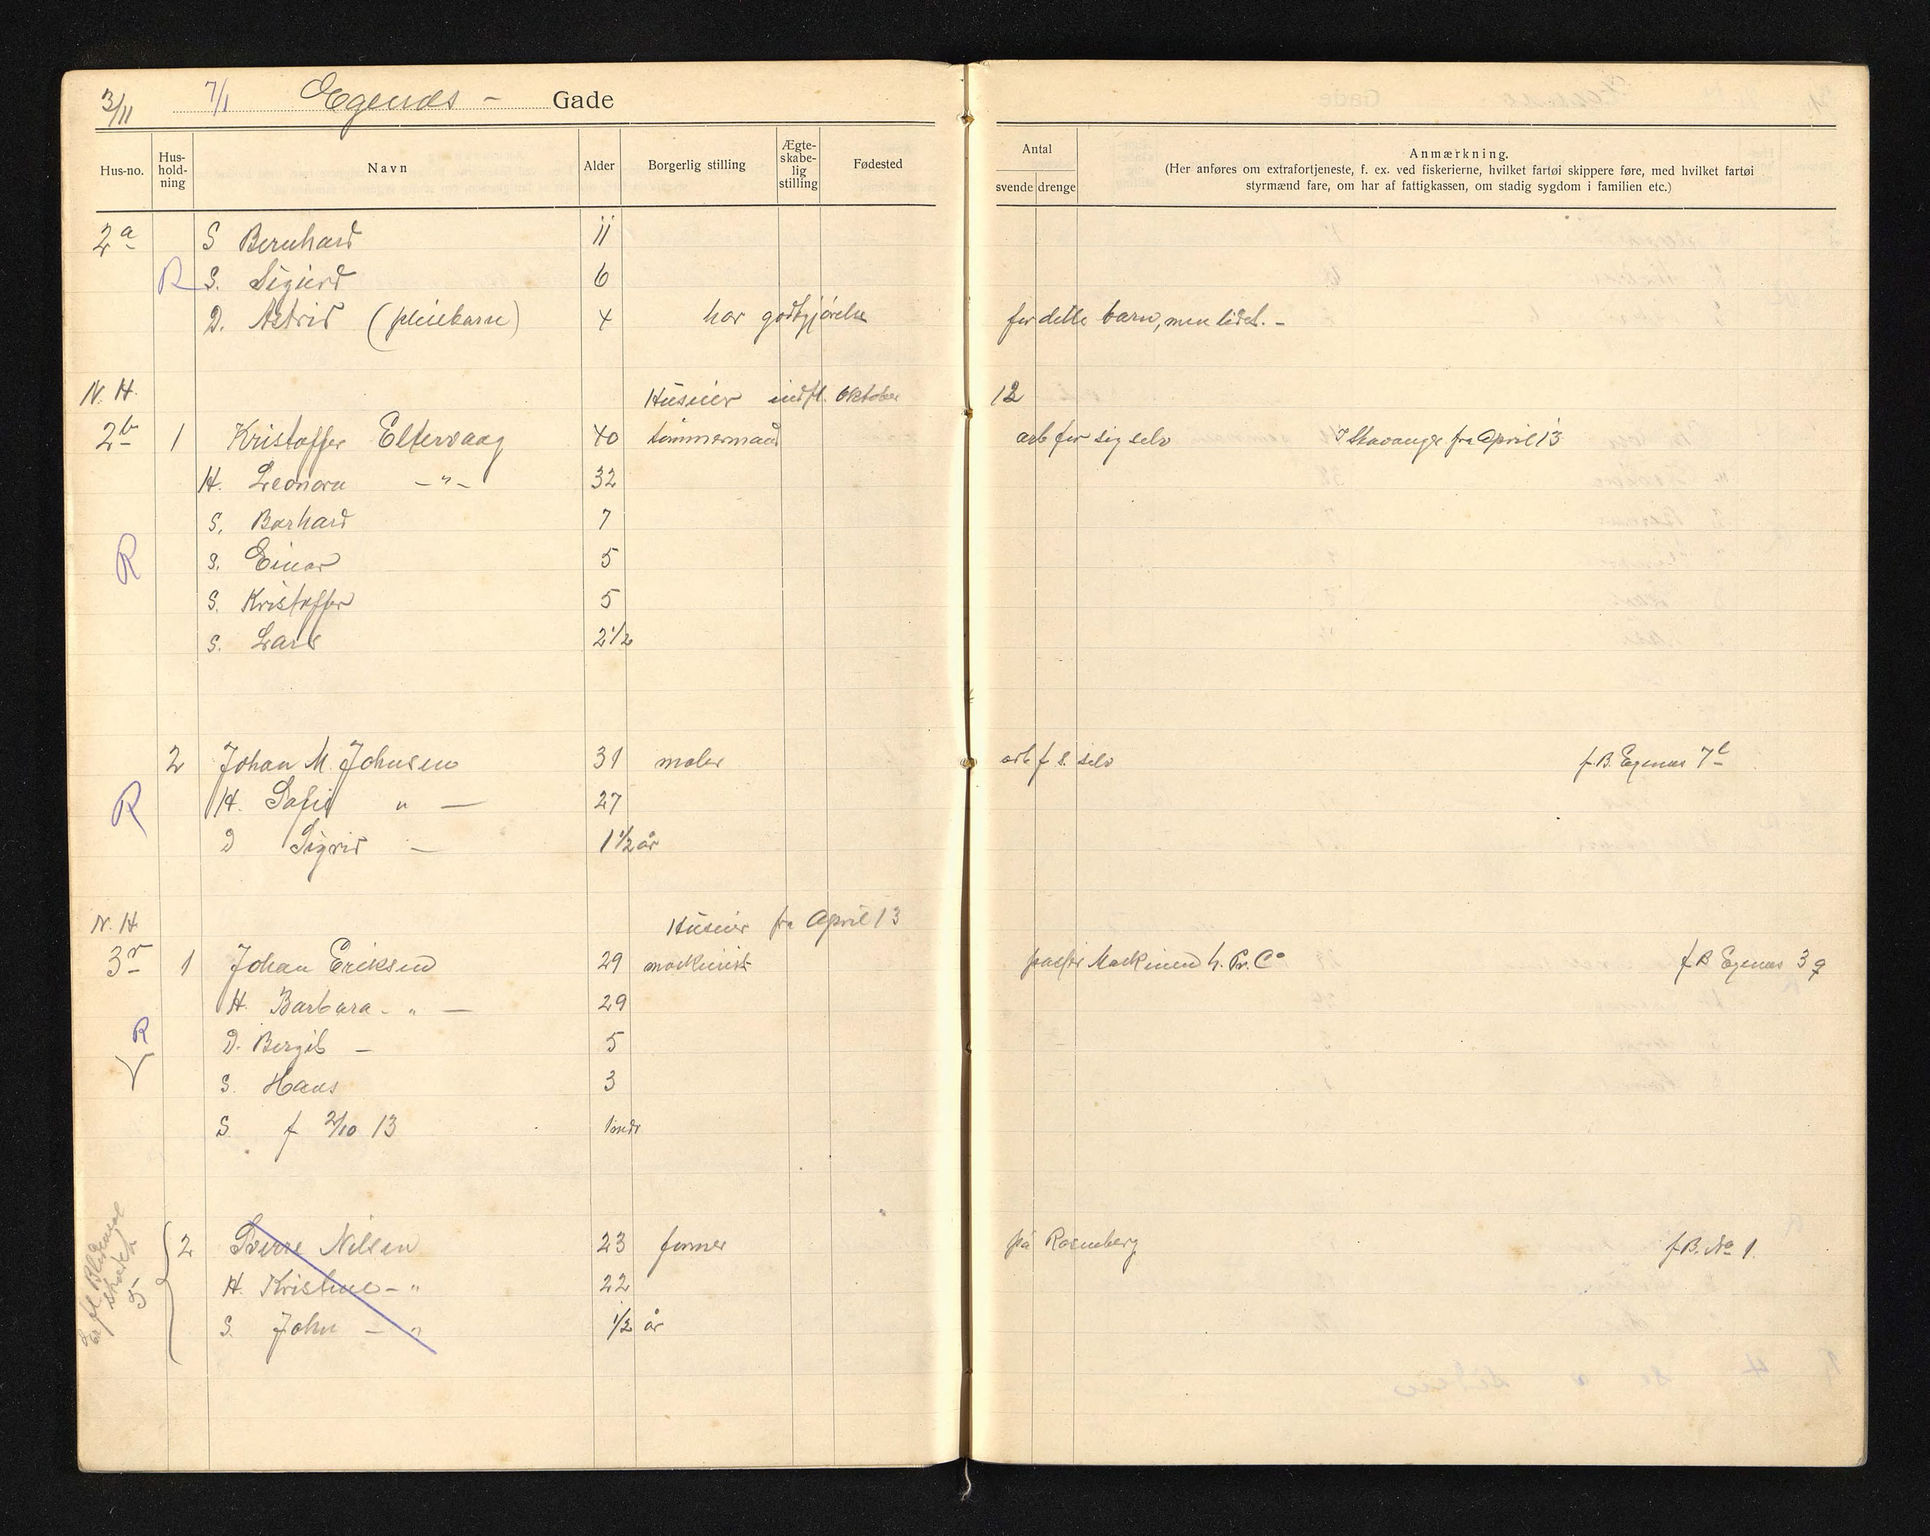 3/11 7/1 Egenes - Gade
Hus-no. Hus-hold-ning Navn Alder Borgerlig stilling Ægte-skabe-lig stilling Fødested Antal svende drenge Anmærkning.
(Her anføres om extrafortjeneste, f. ex. ved fiskerierne, hvilket fartøi skippere føre, med hvilket fartøi
styrmænd fare, om har af fattigkassen, om stadig sygdom i familien etc.)
2a S Bernhard 11
R S. Sigurd 6
D. Astrid (pleiebarn) 4 har godtgjørelse for dette barn, men lidet. -
N. H. Huseier indfl. Oktober 12
2b 1 Kristoffer Eltervaag 40 tømmermand arb for sig selv I Stavanger fra April 13
H. Leonora -"- 32
S. Barhard 7
R S. Einar 5
S. Kristoffer 5
S. Lars 2 1/2
2 Johan M. Johnsen 31 maler arb f s. selv f. B. Egenes 7e
R H. Sofie " - 27
D Sigrid - 1 1/2 år
N. H Huseier fra April 13
3r 1 Johan Eriksen 29 maskinist Maskinen h. Pr. Co f B Egenes 3 g
H. Barbara - " - 29
R D. Bergit - 5
S. Hans 3
S. f 2/10 13 1 mdr
2 Sverre Nilsen 23 former på Rosenberg f. B. No 1.
H. Kristine - " 22
S. John - " 1/2 år
Er fl.
5